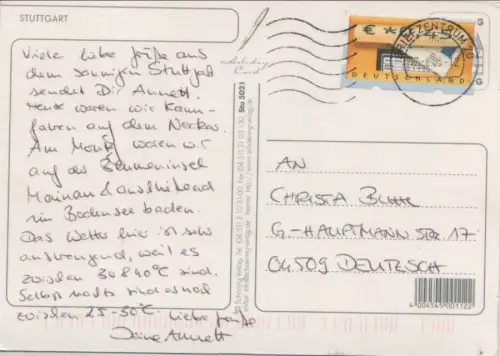 STUTTGART
Viele liebe Grüße aus
dem sonnigen Stuttgart
sendet Dir Annett.
Heute waren wir Kanu-
fahren auf dem Neckar.
Am Montag waren wir
auf der Blumeninsel
Mainau & anschließend
im Bodensee baden.
Das Wetter hier ist sehr
anstrengend, weil es
zwischen 30 & 40°C sind.
Selbst nachts sind es noch
zwischen 25-30°C. Liebe Grüße
Deine Annett
Stu 5021
BRIEFZENTRUM 70
DEUTSCHLAND
AN
CHRISTA
G-HAUPTMANN STR. 17
04509 DELITZSCH
4 004545 001122